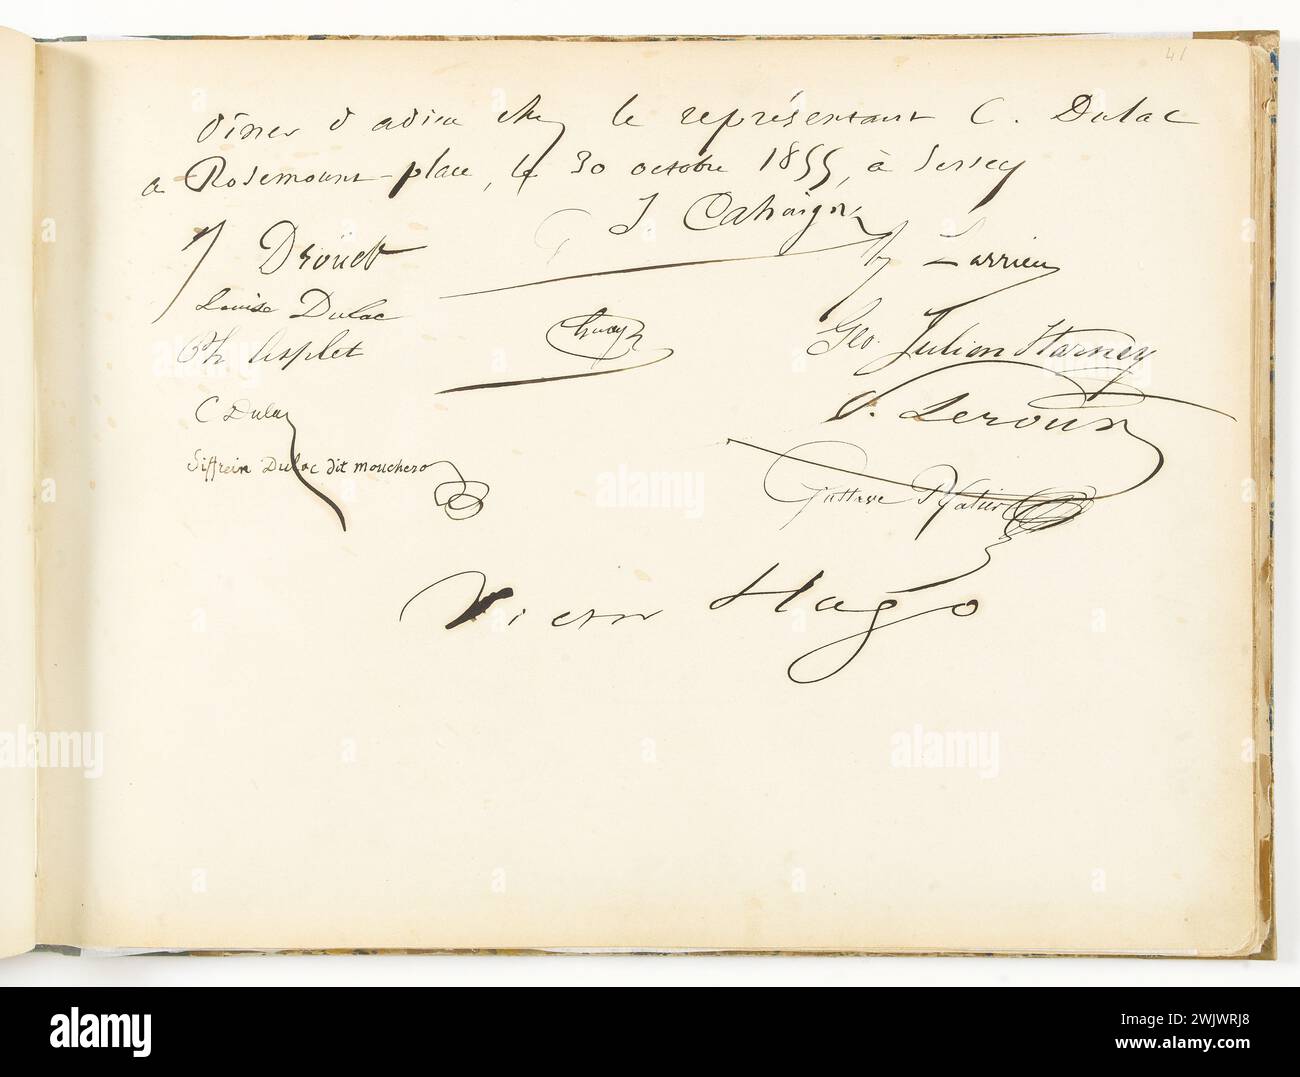 41
Dîner d'adieu chez le représentant C. Dulac
a Rosemount-place, le 30 octobre 1855, à Jersey
J. Cahaigne
J Drouet
Larrieu
Louise Dulac
Geo. Julian Harney
Ph
C Dulac
P. Leroux
Siffrein Dulac dit mouchero
Gustave Ratier
Victor Hugo
alamy
Image ID: 2WJWRJ8
www.alamy.com